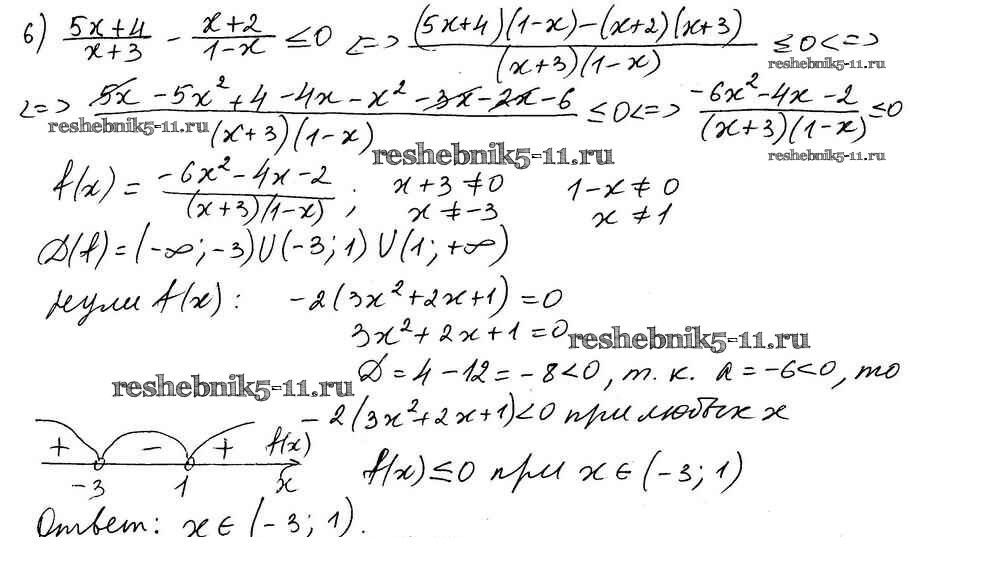 б) (5x+4)/(x+3) - (x+2)/(1-x) ≤0 <=> ((5x+4)(1-x)-(x+2)(x+3))/((x+3)(1-x)) ≤0<=>
reshebnik5-11.ru
<=> (5x-5x²+4-4x-x²-3x-2x-6)/((x+3)(1-x)) ≤0<=> (-6x²-4x-2)/((x+3)(1-x)) ≤0
reshebnik5-11.ru
reshebnik5-11.ru
reshebnik5-11.ru
f(x) = (-6x²-4x-2)/((x+3)(1-x)); x+3≠0 1-x≠0
x≠-3 x≠1
D(f)=(-∞;-3)U(-3;1)U(1;+∞)
нули f(x): -2(3x²+2x+1)=0
3x²+2x+1=0
reshebnik5-11.ru
D=4-12=-8<0, т.к. a=-6<0, то
reshebnik5-11.ru
-2(3x²+2x+1)<0 при любых x
+ - + f(x)
-3 1 x
f(x)≤0 при x∈(-3;1)
Ответ: x∈(-3;1).